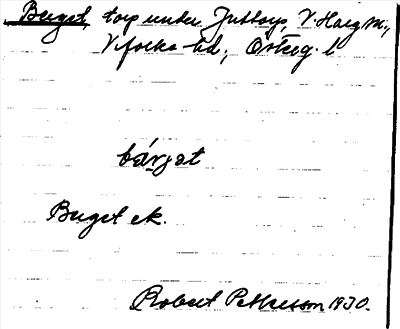 Berget, torp under Juttorp, V. Harg sn,
Vifolka hd, Östog. l
bárjat
Berget ek.
Robert Pettersson 1930.